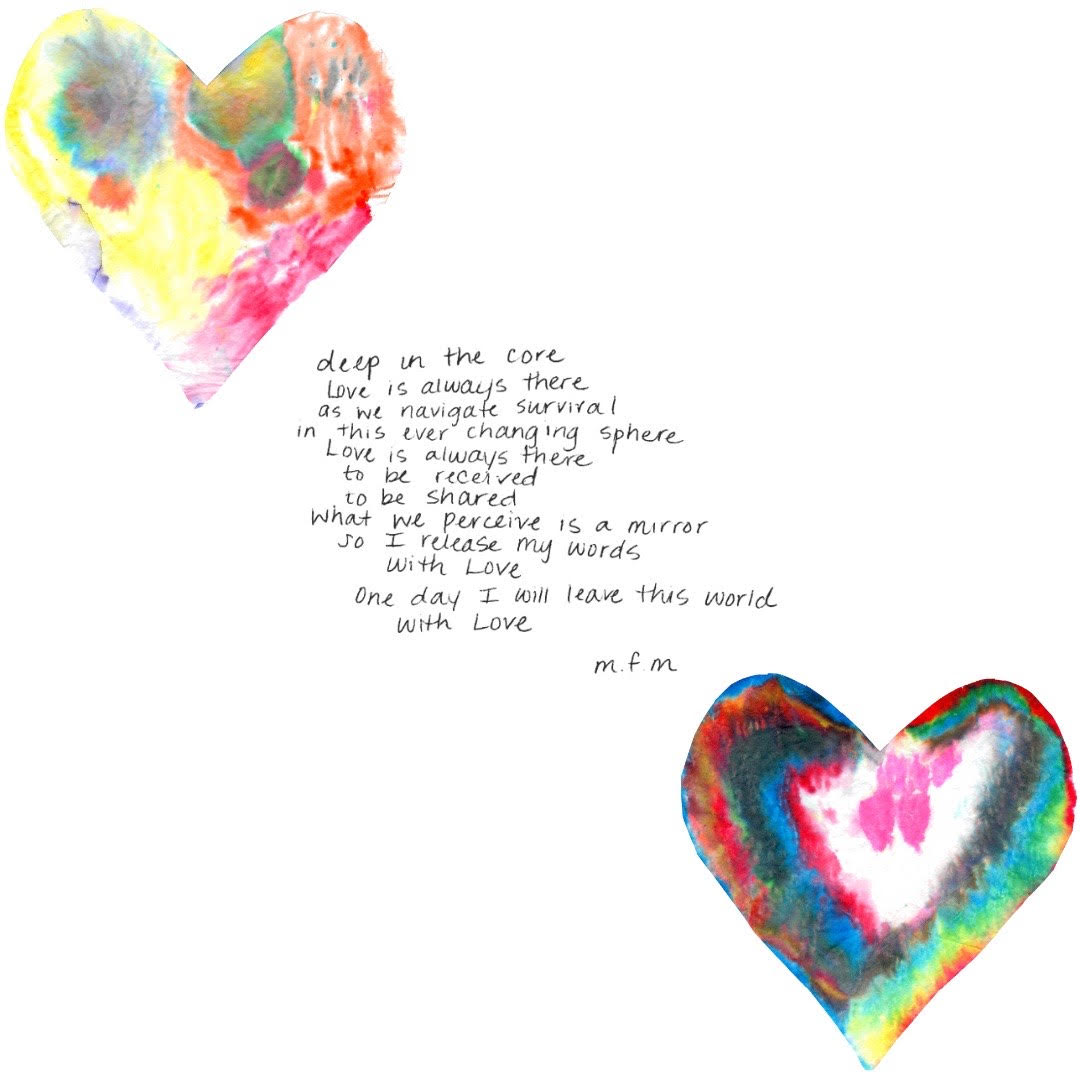 deep in the core
Love is always there
as we navigate survival
in this ever changing sphere
Love is always there
to be received
to be shared
What we perceive is a mirror
so I release my words
With Love
One day I will leave this world
with Love
m.f.m